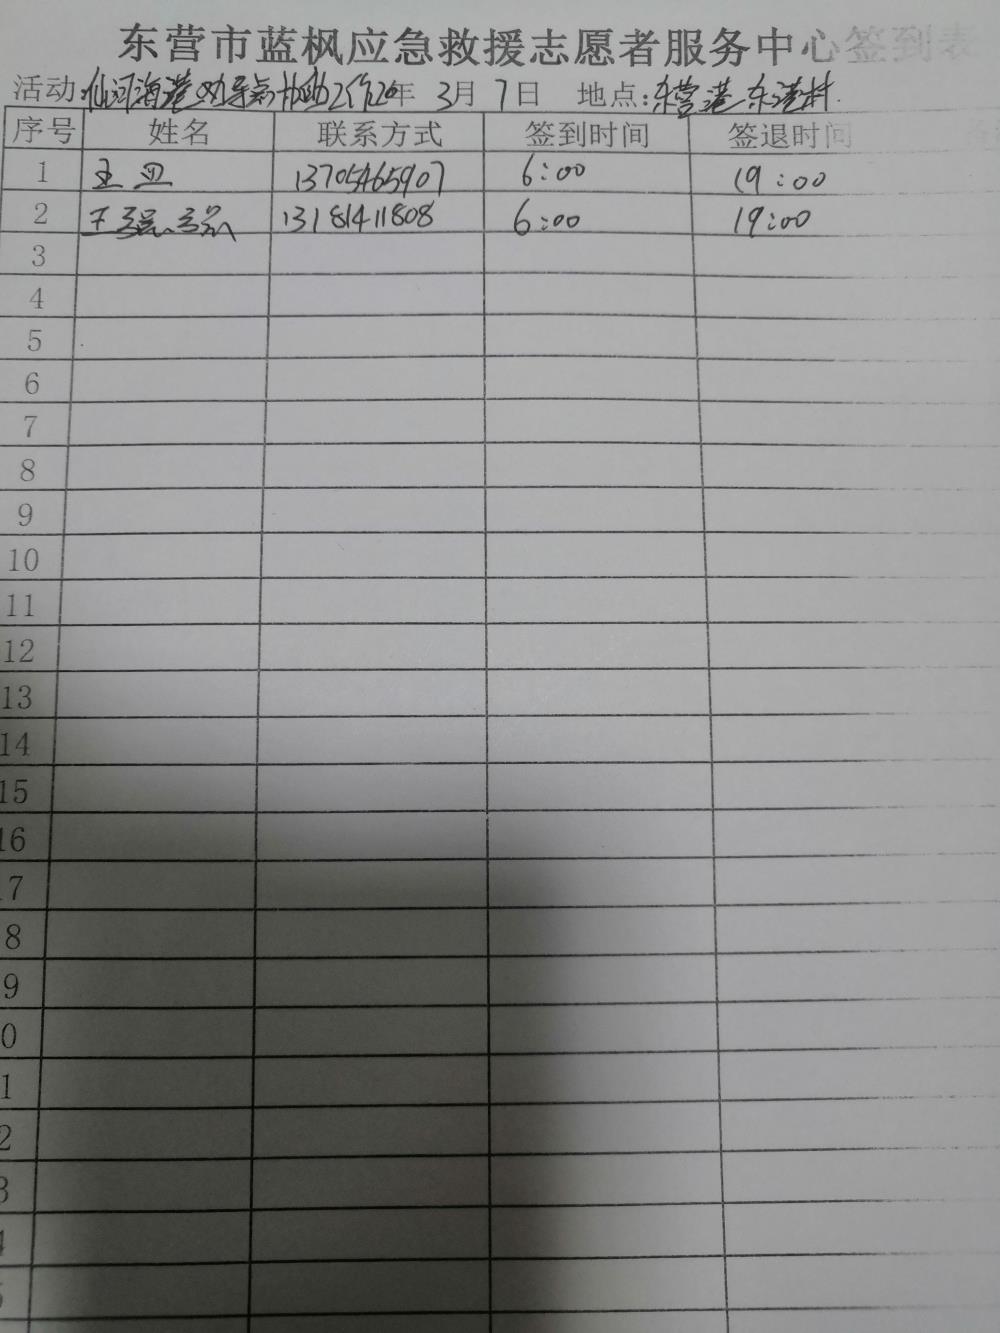 东营市蓝枫应急救援志愿者服务中心签到表
活动:仙河海港劝导点协助工作20年 3月 7日 地点:东营港东港村
序号 姓名 联系方式 签到时间 签退时间
1 13705465907 6:00 19:00
2 王强强 13181411808 6:00 19:00
3
4
5
6
7
8
9
10
11
12
13
14
15
16
17
8
9
0
1
2
3
4
5